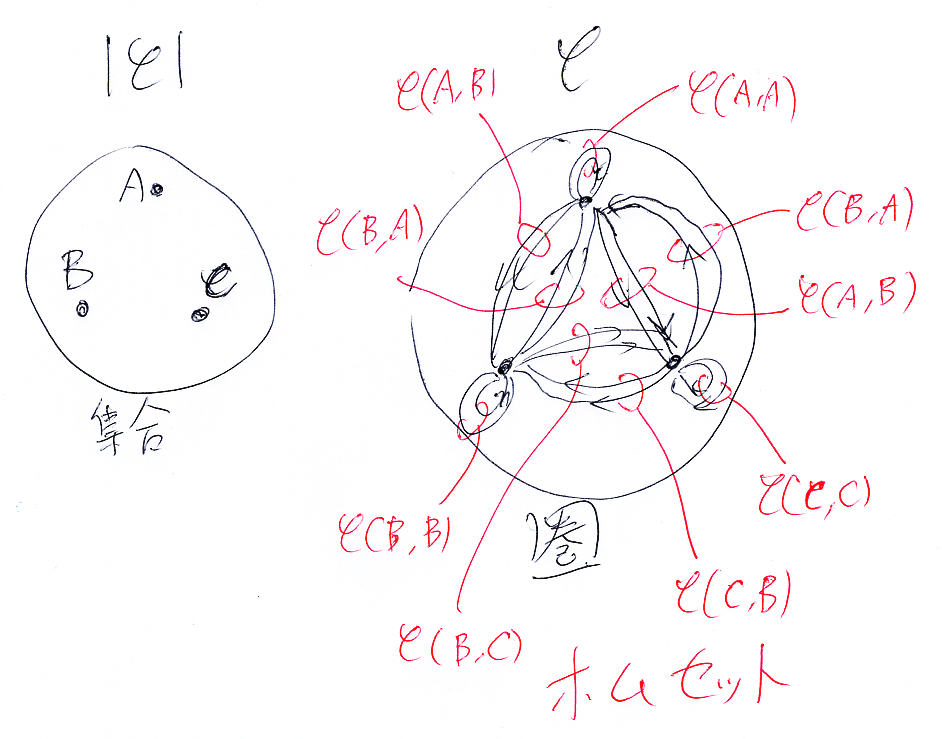 |𝒞|
A
B
C
集合
𝒞
𝒞(A,B)
𝒞(A,A)
𝒞(B,A)
𝒞(B,A)
𝒞(A,B)
𝒞(C,C)
𝒞(B,B)
𝒞(C,B)
𝒞(B,C)
圏
ホムセット